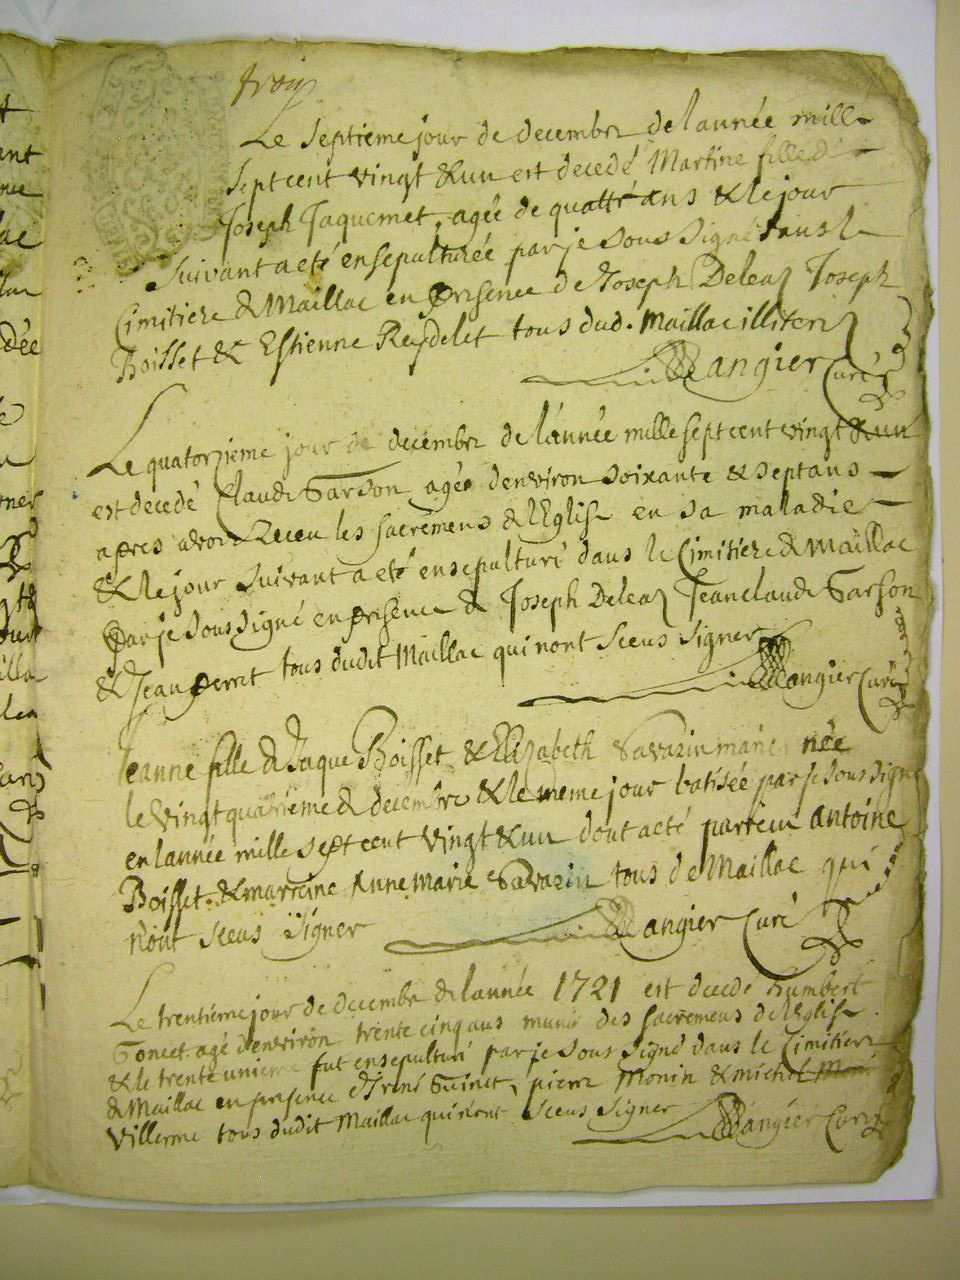 trois
Le septieme jour de decembre de lannée mille
sept cent vingt & un est decedé Martine fille de
Joseph Jaquemet, agée de quattre ans & le jour
suivant a eté ensepulturée par je sous signé dans le
Cimitiere de Maillac en presence de Joseph Deleaz Joseph
Boisset & Estienne Reydelet tous dud. Maillac illiterez
Mangier Curé
Le quatorzieme jour de decembre de l'année mille sept cent vingt & un
est decedé Claude Garson agée denviron soixante & sept ans
apres avoir Receu les sacremens de l'Eglise en sa maladie
& le jour suivant a eté ensepulturé dans le Cimitiere de Maillac
par je sous signé en presence de Joseph Deleaz Jean claude Garson
& Jean perret tous dudit Maillac qui n'ont sceus signer
Mangier Curé
Jeanne fille de Jaque Boisset & Elizabeth Savarin mariés née
le vingt quatrieme de decembre & le meme jour batisée par je sous signé
en lannée mille sept cent vingt & un dont a eté parrein antoine
Boisset & marreine Anne marie Savarin tous de Maillac qui
n'ont sceus signer Mangier Curé
Le trentieme jour de decembre de lannée 1721 est decedé humbert
Gonet agé denviron trente cinq ans muni des sacremens de l'Eglise
& le trente unieme fut ensepulturé par je sous signé dans le Cimitiere
de Maillac en presence d'rené Guinet, pierre Monin & michel
Villerme tous dudit Maillac qui n'ont sceus signer Mangier Curé